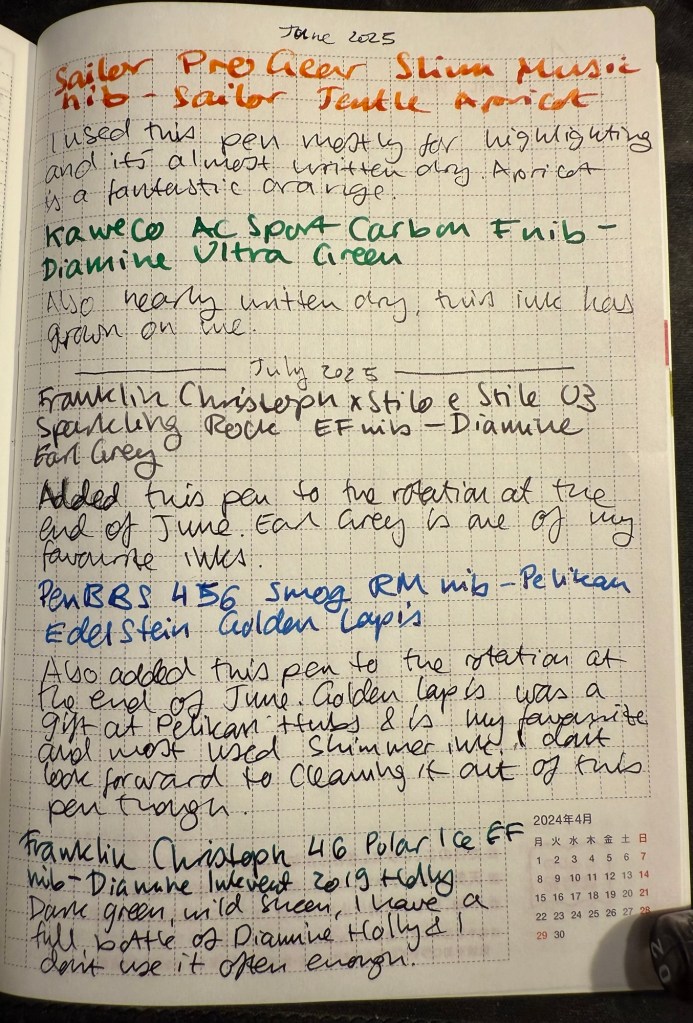 June 2025
Sailor Pro Gear Slim Music
nib - Sailor Jentle Apricot
I used this pen mostly for highlighting
and it's almost written dry. Apricot
is a fantastic orange.
Kaweco AC Sport Carbon F nib -
Diamine Ultra Green
Also nearly written dry, this ink has
grown on me.
July 2025
Franklin Christoph x Stilo e Stile 03
Sparkling Rock EF nib - Diamine
Earl Grey
Added this pen to the rotation at the
end of June. Earl Grey is one of my
favourite inks.
PenBBS 456 Smog RM nib - Pelikan
Edelstein Golden Lapis
Also added this pen to the rotation at
the end of June. Golden Lapis was a
gift at Pelikan Hubs & is my favourite
and most used shimmer ink. I don't
look forward to cleaning it out of this
pen though.
Franklin Christoph 46 Polar Ice EF
nib - Diamine Inkvent 2019 Holly
Dark green, wild sheen, I have a
full bottle of Diamine Holly & I
don't use it often enough.
2024年4月
月 火 水 木 金 土 日
1 2 3 4 5 6 7
8 9 10 11 12 13 14
15 16 17 18 19 20 21
22 23 24 25 26 27 28
29 30